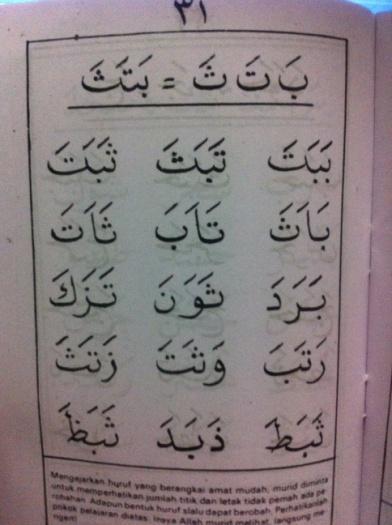 ٣١
بَ تَ ثَ = بَتَثَ
بَبَتَ تَبَثَ ثَبَتَ
بَاَثَ تَاَبَ ثَاَتَ
بَرَدَ ثَوَنَ تَزَكَ
رَتَبَ وَثَتَ زَتَثَ
ثَبَطَ ذَبَدَ ثَبَظَ
Mengajarkan huruf yang berangkai amat mudah, murid diminta
untuk memperhatikan jumlah titik dan letak tidak pernah ada pe-
robahan. Adapun bentuk huruf slalu dapat berobah. Perhatikanlah
pokok pelajaran diatas. Insya Allah murid melihat, langsung me-
ngerti